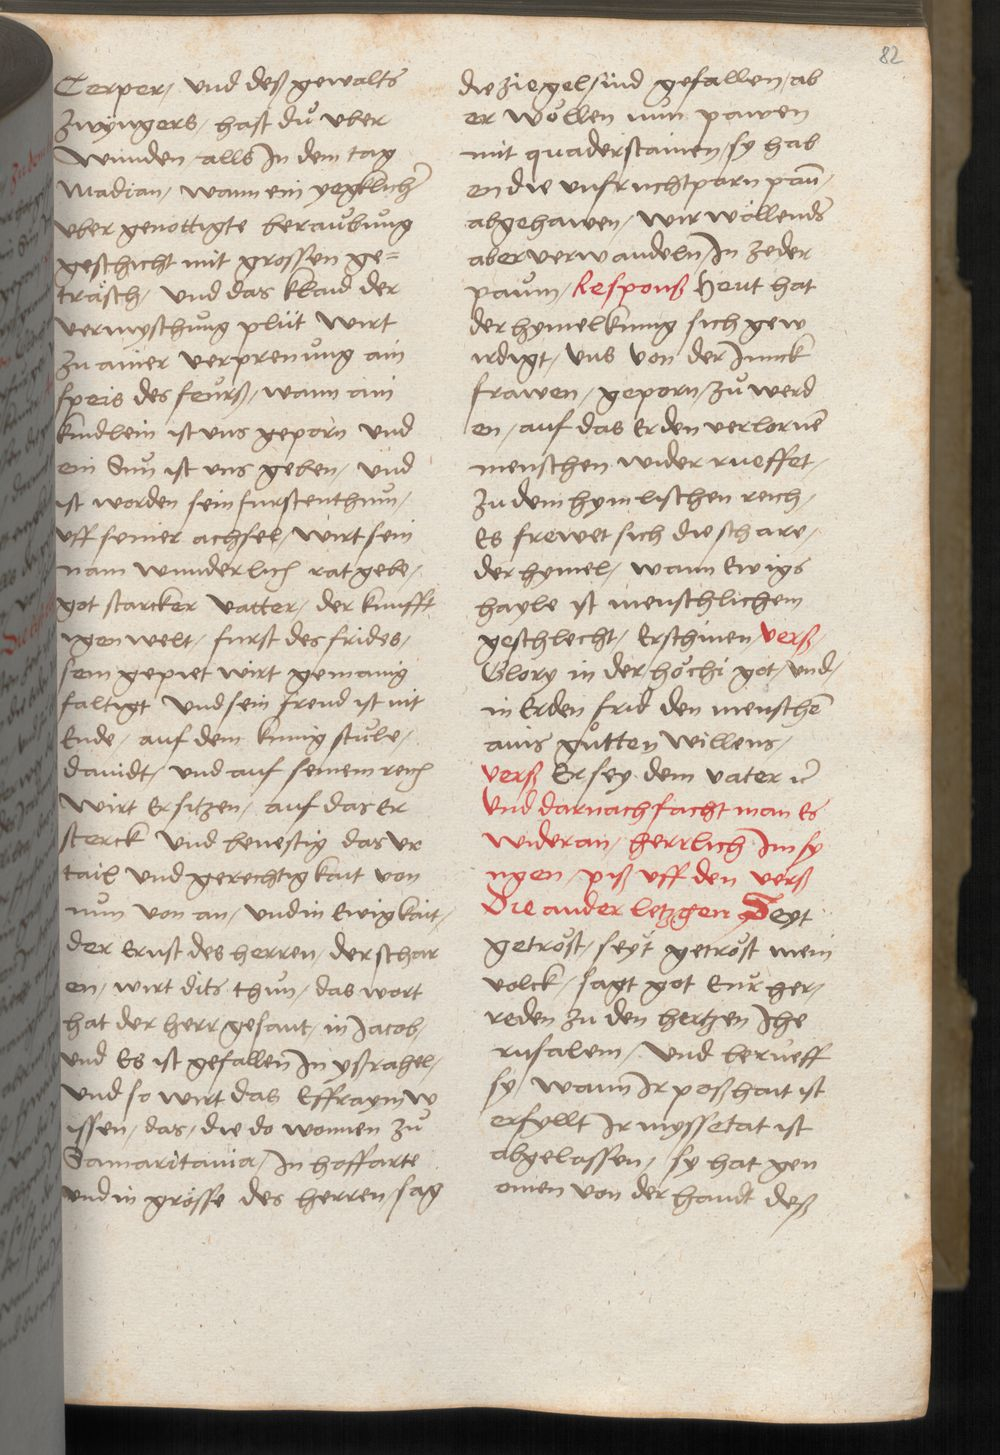 82
Cerper, und deß gewalts
zwyngers, hast du uber
wunden alls In dem tag
Madian, wann ein yegklicher
uber genottigte beraubung
geschicht mit grossen ge=
träsch, und das klaid der
vermyschung plüt wirt
zu ainer verprenung ain
speis des feurß, wann ain
kindlein ist uns geporn und
ein Sun ist uns geben, und
ist worden sein furstenthum,
uff seiner achsel, wirt sein
nam wunderlich rat gebe,
got starcker vatter, der kunfft
igen welt, furst des frides,
sein gepiet wirt gemanig
faltigt und sein frend ist nit
Ende, auf dem kunig stule,
dauidt, und auf seinem reich
wirt Er sitzen, auf das Er
sterck und bevestig das ur
tail und gerechtigkait von
nun von an, und in Ewigkait,
der Ernst des herren, der schar
en, wirt dits thun, das wort
hat der herr gesant, in Jacob,
und Es ist gefallen In ysrahel,
und so wirt das Effraym w
issen, das, die do wonnen zu
Samaritania, In hoffarte
und in grösse des herren, sag
die ziegel sind gefallen, ab
er wöllen nun pawen
mit quaderstainen, sy hab
en die unfruchtparn paum,
abgehawen, wir wöllends
aber verwandeln, In zeder
paum, Responß Heut hat
der hymel kunig sich gew
irdigt, uns von der Junck
frawen, geporn, zu werd
en, auf das Er den verlornē
menschen wider rueffet,
zu dem hymlischen reich,
Es frewet sich die schare,
der hymel, wann Ewigs
hayle ist menschlichem
geschlecht, Erschinen, verß,
Glory in der höchi got, und,
in Erden frid den menschē
ains gutten willens,
verß Er sey dem vater ic
Und darnach facht man Es
wider an, herrlich Im sy
ngen, piß uff den verß
Die ander letzgen Seyt
getrost, seyt getrost mein
volck, sagt got Eur her,
reden zu den hertzen Jhe
rusalem, und berueff
sy, wann Ir poßhait ist
erfyllt Ir myssetat ist
abgelassen, sy hat gen
omen von der handt deß